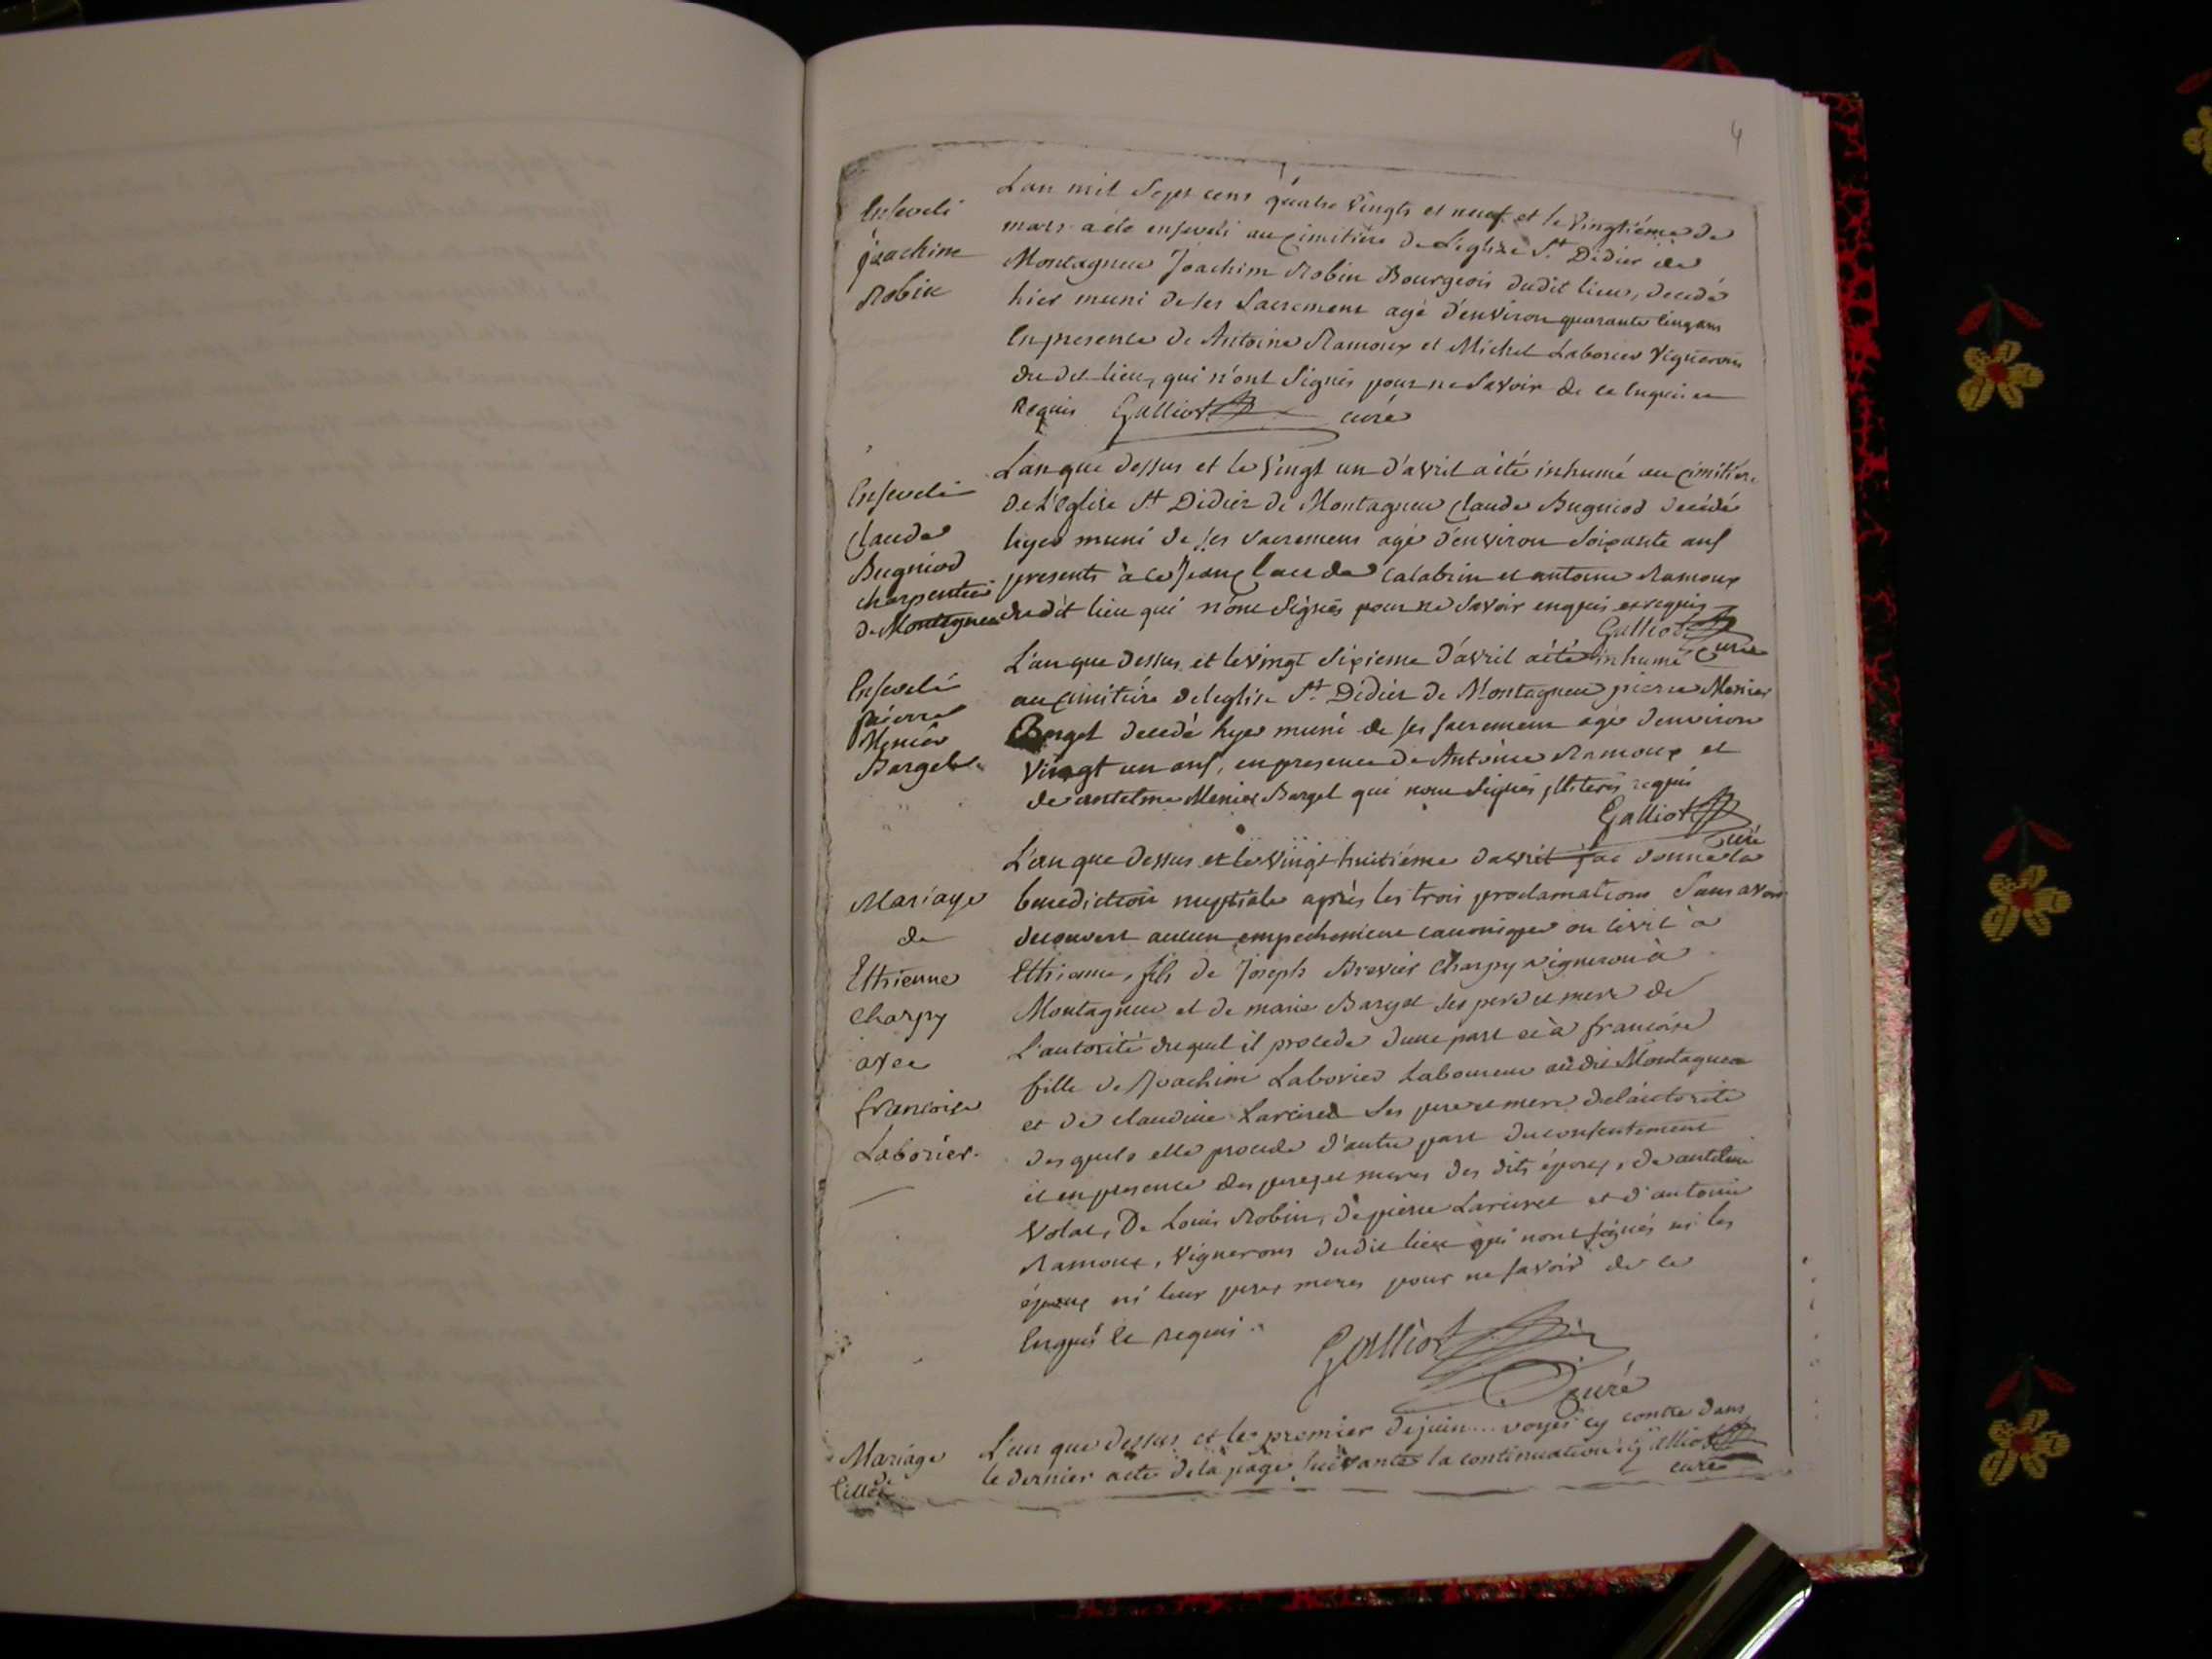 4
Enseveli
joachim
Robin
L'an mil sept cens quatre vingts et neuf et le vingtième de
mars a été enseveli au cimitière de L'eglize St Didier de
Montagneu Joachim Robin Bourgeois dudit lieu, decedé
hier muni de ses Sacremens agé d'environ quarante cinq ans
En presence de Antoine Ramoux et Michel Laborier Vignerons
du dit lieu, qui n'ont signés pour ne savoir de ce enquis et
Requis Galliot curé
Enseveli
Claude
Bugniod
charpentier
de Montagneu
L'an que dessus et le vingt un d'avril a été inhumé au cimitiere
de L'eglise St Didier de Montagneu Claude Bugniod decédé
hyer muni de ses sacremens agé d'environ soixante ans
presents à ce Jean Claude Calabrin et antoine Ramoux
dudit lieu qui n'ont signés pour ne savoir enquis et requis
Galliot curé
Enseveli
Pierre
Menier
Barget
L'an que dessus et le vingt sixieme d'avril a été inhumé
au cimitière de leglise St Didier de Montagneu pierre Menier
Barget decedé hyer muni de ses sacremens agé d'environ
vingt un ans, en presence de Antoine Ramoux et
de antelme Menier Barget qui nont signés illiterés requis
Galliot
curé
Mariage
de
Ethienne
Charpy
avec
francoise
Laborier.
L'an que dessus et le vingt huitiéme d'avril j'ai donné la
benediction nuptiale après les trois proclamations sans avoir
decouvert aucun empechement canonique ou civil à
Ethienne, fils de Joseph Brevier Charpy vigneron à
Montagneu et de marie Barget ses pere et mere de
L'autorité duquel il procede d'une part et à francoise
fille de Joachim Laborier Laboureur au dit Montagneu
et de claudine Larivet ses pere et mere de l'autorité
desquels elle procede d'autre part du consentement
et en presence des peres et meres des dits époux, de antelme
Volat, De Louis Robin, de pierre Larivet et d'antoine
Ramoux, Vignerons dudit lieu qui n'ont signés ni les
époux ni leur peres meres pour ne savoir de ce
Enquis et Requis.
Galliot
curé
Mariage
L'an que dessus et le premier de juin.... voyés cy contre dans
le dernier acte de la page suivante la continuation Galliot
curé